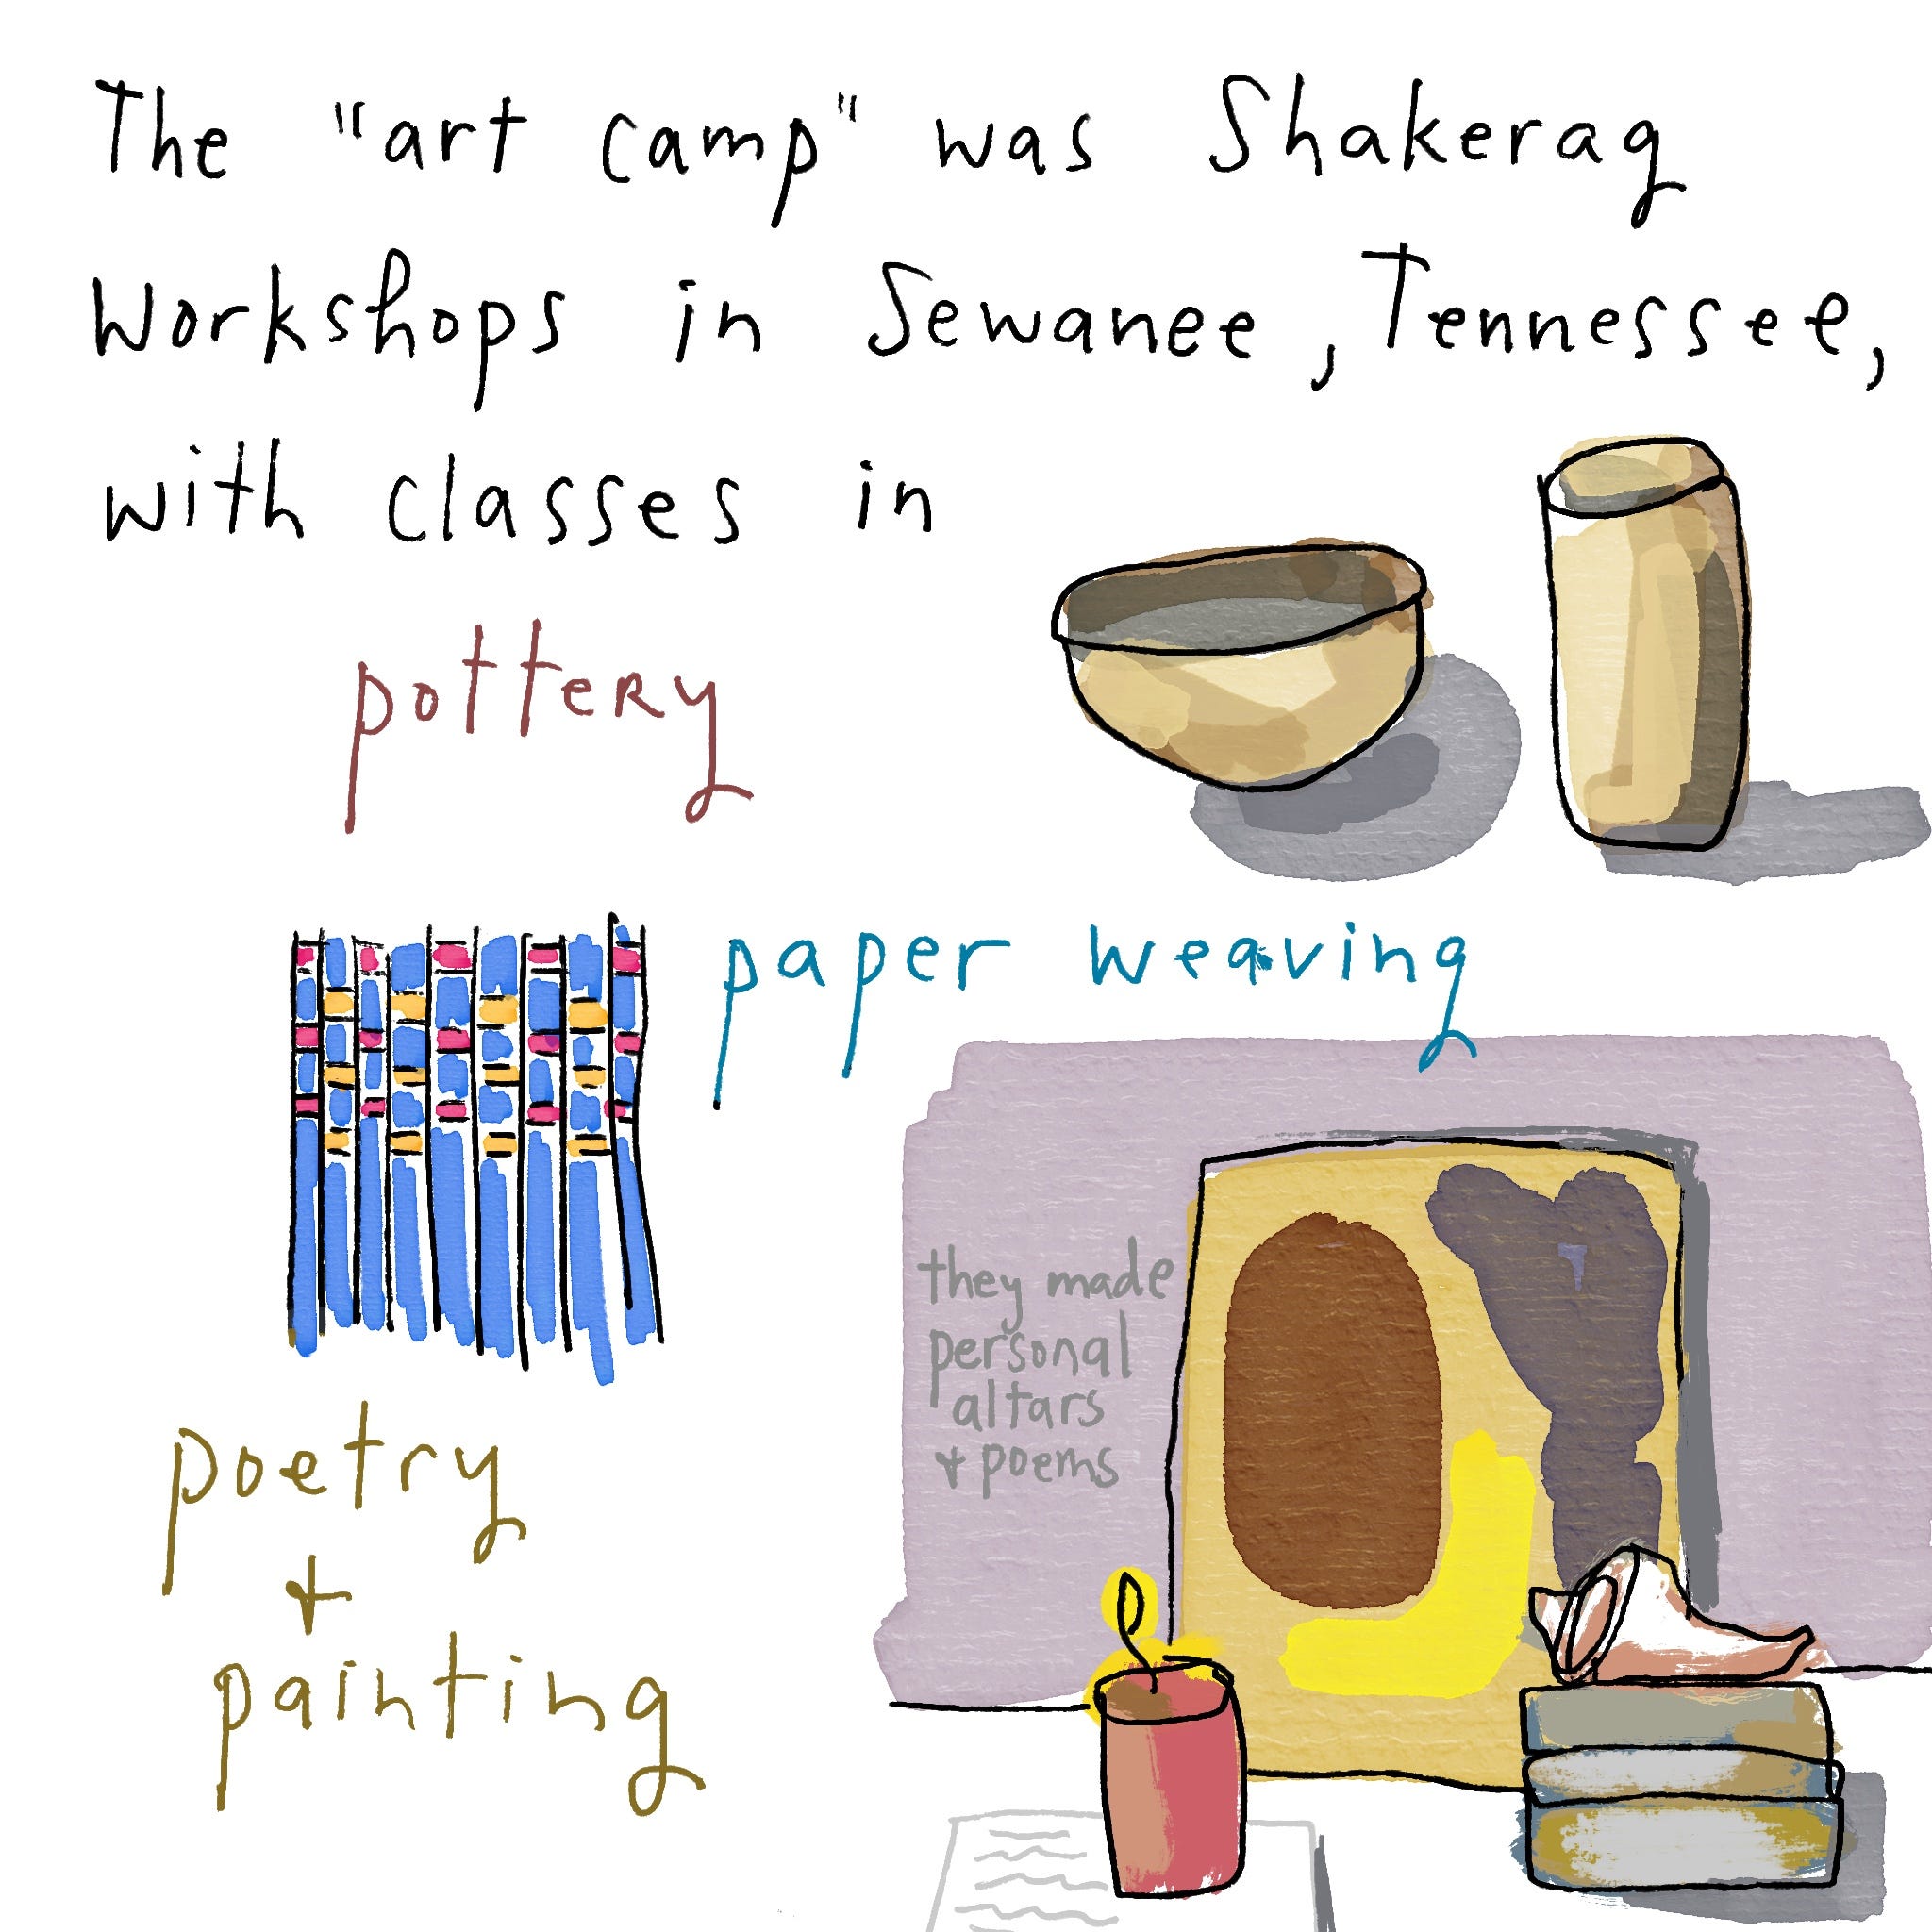 The "art camp" was Shakerag
Workshops in Sewanee, Tennessee,
with classes in
pottery
paper weaving
they made
personal
altars
+ poems
poetry
+
painting